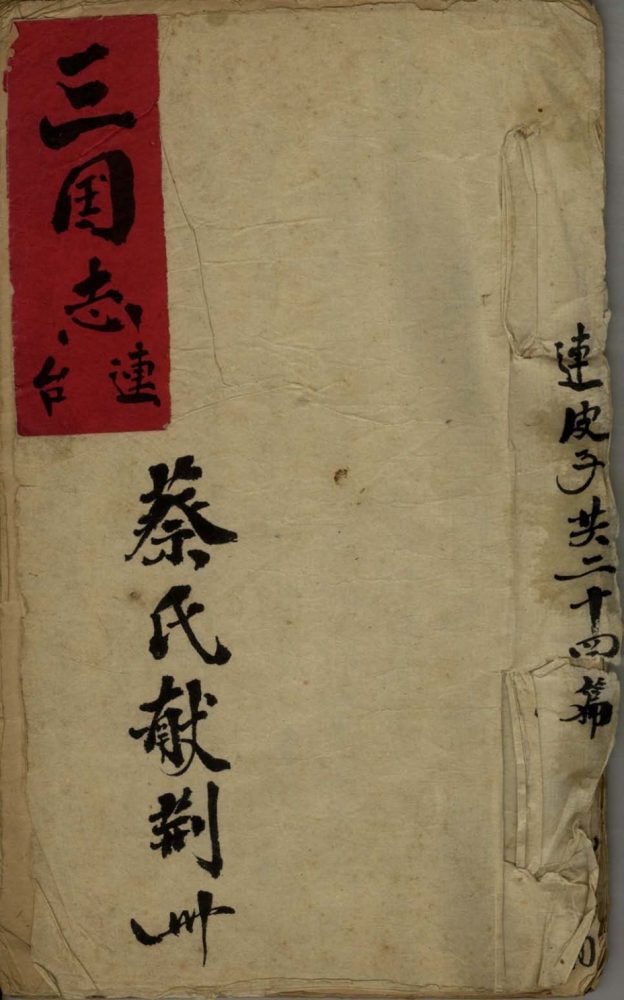 連皮子共二十四篇
三国志
連台
蔡氏献荆州